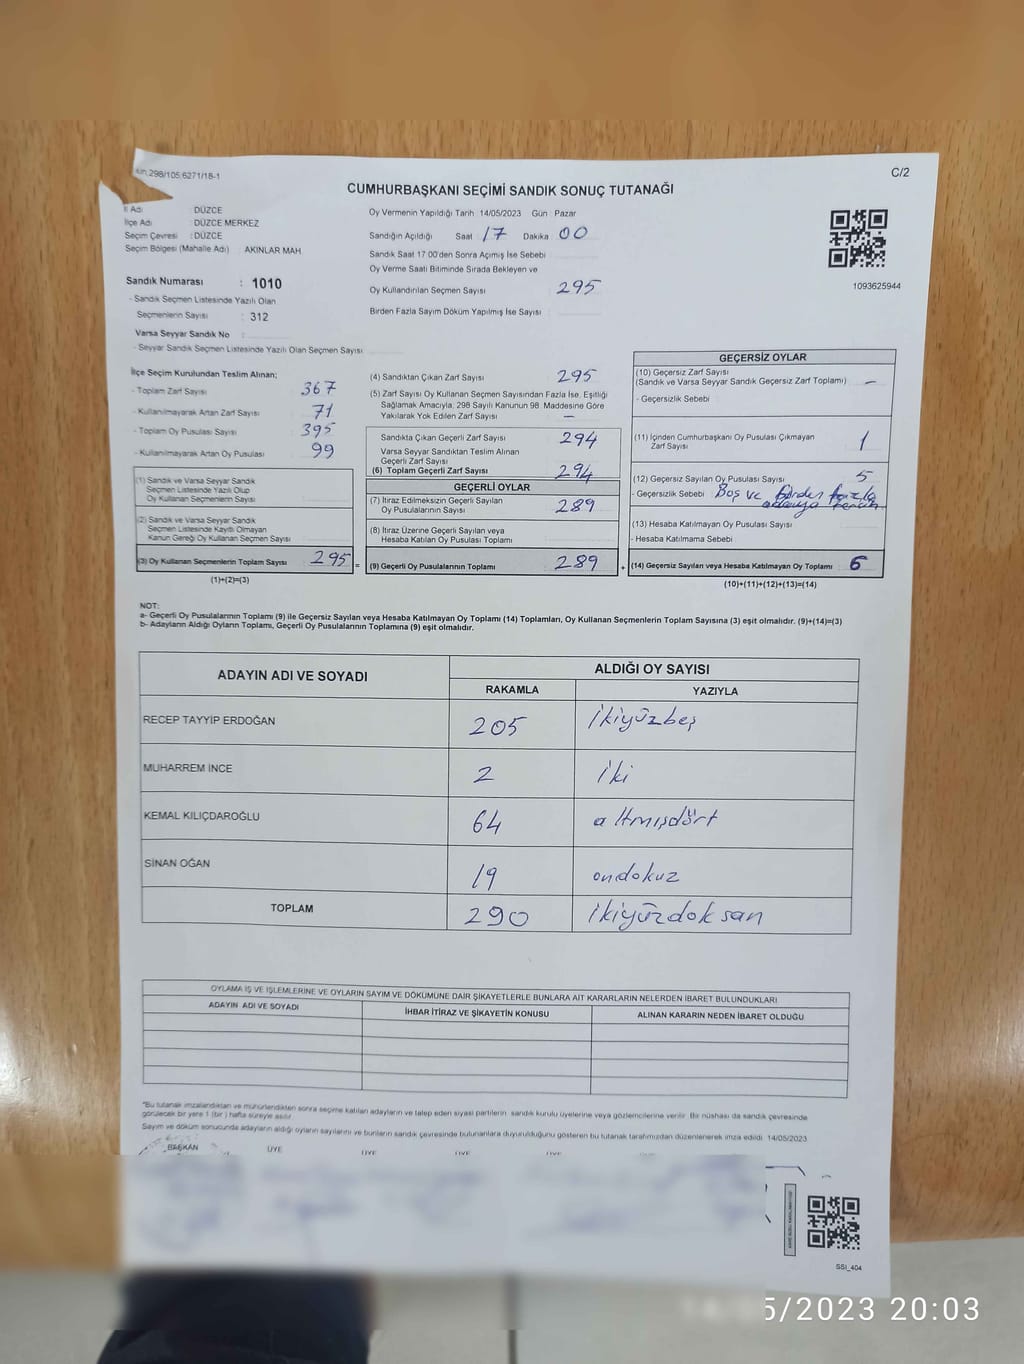 298/105.6271/18-1
C/2
CUMHURBAŞKANI SEÇİMİ SANDIK SONUÇ TUTANAĞI
İl Adı : DÜZCE
İlçe Adı : DÜZCE MERKEZ
Seçim Çevresi : DÜZCE
Seçim Bölgesi (Mahalle Adı) : AKINLAR MAH
Sandık Numarası : 1010
- Sandık Seçmen Listesinde Yazılı Olan
Seçmenlerin Sayısı : 312
Varsa Seyyar Sandık No :
- Seyyar Sandık Seçmen Listesinde Yazılı Olan Seçmen Sayısı
Oy Vermenin Yapıldığı Tarih 14/05/2023 Gün Pazar
Sandığın Açıldığı Saat 17 Dakika 00
Sandık Saat 17:00'den Sonra Açımış İse Sebebi
Oy Verme Saati Bitiminde Sırada Bekleyen ve
Oy Kullandırılan Seçmen Sayısı 295
Birden Fazla Sayım Döküm Yapılmış İse Sayısı
1093625944
İlçe Seçim Kurulundan Teslim Alınan:
- Toplam Zarf Sayısı 367
- Kullanılmayarak Artan Zarf Sayısı 71
- Toplam Oy Pusulası Sayısı 395
- Kullanılmayarak Artan Oy Pusulası 99
(1) Sandık ve Varsa Seyyar Sandık
Seçmen Listesinde Yazılı Olup
Oy Kullanan Seçmenlerin Sayısı
(2) Sandık ve Varsa Seyyar Sandık
Seçmen Listesinde Kayıtlı Olmayan
Kanun Gereği Oy Kullanan Seçmen Sayısı
(3) Oy Kullanan Seçmenlerin Toplam Sayısı 295 =
(1)+(2)=(3)
(4) Sandıktan Çıkan Zarf Sayısı 295
(5) Zarf Sayısı Oy Kullanan Seçmen Sayısından Fazla İse, Eşitliği
Sağlamak Amacıyla, 298 Sayılı Kanunun 98. Maddesine Göre
Yakılarak Yok Edilen Zarf Sayısı —
Sandıkta Çıkan Geçerli Zarf Sayısı 294
Varsa Seyyar Sandıktan Teslim Alınan
Geçerli Zarf Sayısı
(6) Toplam Geçerli Zarf Sayısı 294
GEÇERLİ OYLAR
(7) İtiraz Edilmeksizin Geçerli Sayılan
Oy Pusulalarının Sayısı 289
(8) İtiraz Üzerine Geçerli Sayılan veya
Hesaba Katılan Oy Pusulası Toplamı
(9) Geçerli Oy Pusulalarının Toplamı 289 +
GEÇERSİZ OYLAR
(10) Geçersiz Zarf Sayısı
(Sandık ve Varsa Seyyar Sandık Geçersiz Zarf Toplamı) —
- Geçersizlik Sebebi
(11) İçinden Cumhurbaşkanı Oy Pusulası Çıkmayan
Zarf Sayısı 1
(12) Geçersiz Sayılan Oy Pusulası Sayısı 5
- Geçersizlik Sebebi Boş ve birden fazla
adaya
(13) Hesaba Katılmayan Oy Pusulası Sayısı
- Hesaba Katılmama Sebebi
(14) Geçersiz Sayılan veya Hesaba Katılmayan Oy Toplamı 6
(10)+(11)+(12)+(13)=(14)
NOT:
a- Geçerli Oy Pusulalarının Toplamı (9) ile Geçersiz Sayılan veya Hesaba Katılmayan Oy Toplamı (14) Toplamları, Oy Kullanan Seçmenlerin Toplam Sayısına (3) eşit olmalıdır. (9)+(14)=(3)
b- Adayların Aldığı Oyların Toplamı, Geçerli Oy Pusulalarının Toplamına (9) eşit olmalıdır.
ADAYIN ADI VE SOYADI ALDIĞI OY SAYISI
RAKAMLA YAZIYLA
RECEP TAYYİP ERDOĞAN 205 ikiyüzbeş
MUHARREM İNCE 2 iki
KEMAL KILIÇDAROĞLU 64 altmışdört
SİNAN OĞAN 19 ondokuz
TOPLAM 290 ikiyüzdoksan
OYLAMA İŞ VE İŞLEMLERİNE VE OYLARIN SAYIM VE DÖKÜMÜNE DAİR ŞİKAYETLERLE BUNLARA AİT KARARLARIN NELERDEN İBARET BULUNDUKLARI
ADAYIN ADI VE SOYADI İHBAR İTİRAZ VE ŞİKAYETİN KONUSU ALINAN KARARIN NEDEN İBARET OLDUĞU
*Bu tutanak imzalandıktan ve mühürlendikten sonra seçime katılan adayların ve talep eden siyasi partilerin sandık kurulu üyelerine veya gözlemcilerine verilir. Bir nüshası da sandık çevresinde
görülecek bir yere 1 (bir) hafta süreyle asılır.
Sayım ve döküm sonucunda adayların aldığı oyların sayılarını ve bunların sandık çevresinde bulunanlara duyurulduğunu gösteren bu tutanak tarafımızdan düzenlenerek imza edildi. 14/05/2023
BAŞKAN ÜYE ÜYE ÜYE ÜYE
SSI_404
5/2023 20:03